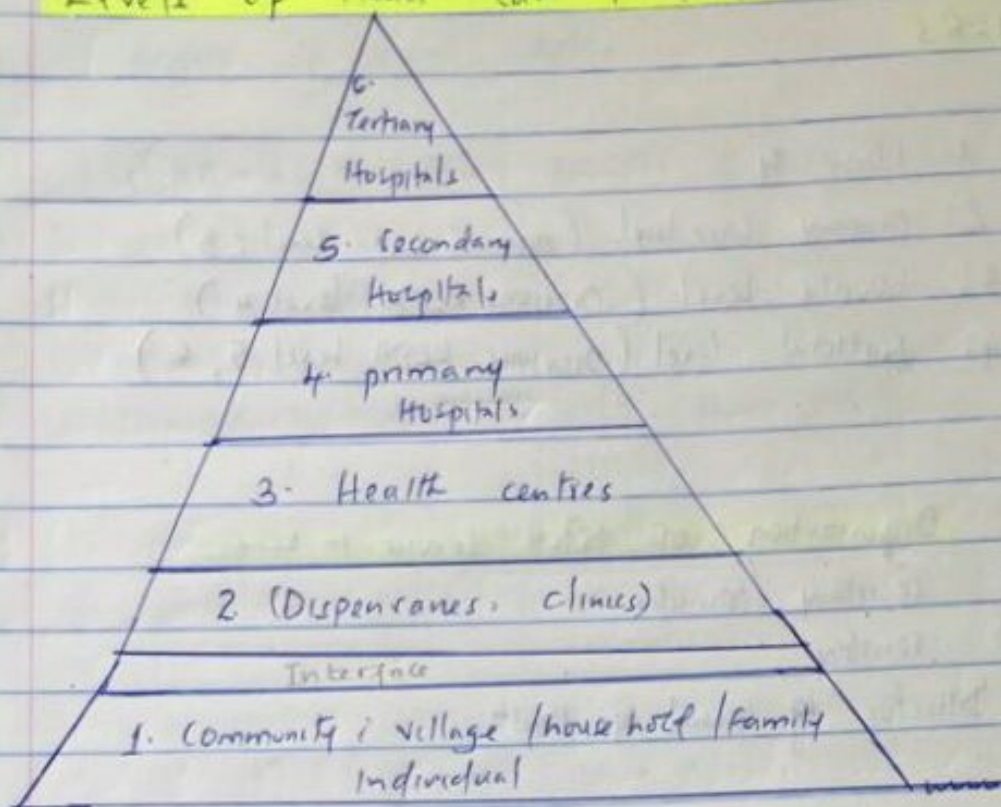 Levels of
6.
Tertiary
Hospitals
5. Secondary
Hospitals
4. primary
Hospitals
3. Health centres
2. (Dispensaries, clinics)
Interface
1. Community : village /house hold /family
Individual